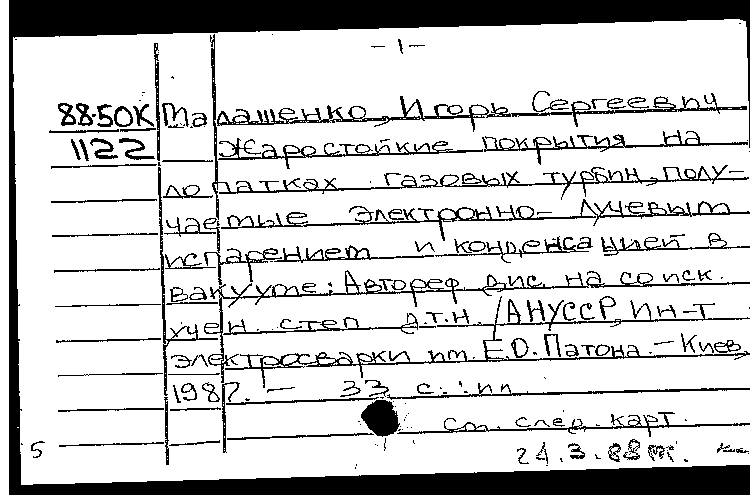 - 1 -
88-50К Малашенко, Игорь Сергеевич
1122 Жаростойкие покрытия на
лопатках газовых турбин, полу-
чаемые электронно-лучевым
испарением и конденсацией в
вакууме: Автореф дис. на соиск.
учен. степ д.т.н. /АН УССР, ин-т
электросварки им. Е.О. Патона. - Киев,
1987. - 33 с.: ил.
см. след. карт.
5 24.3.88